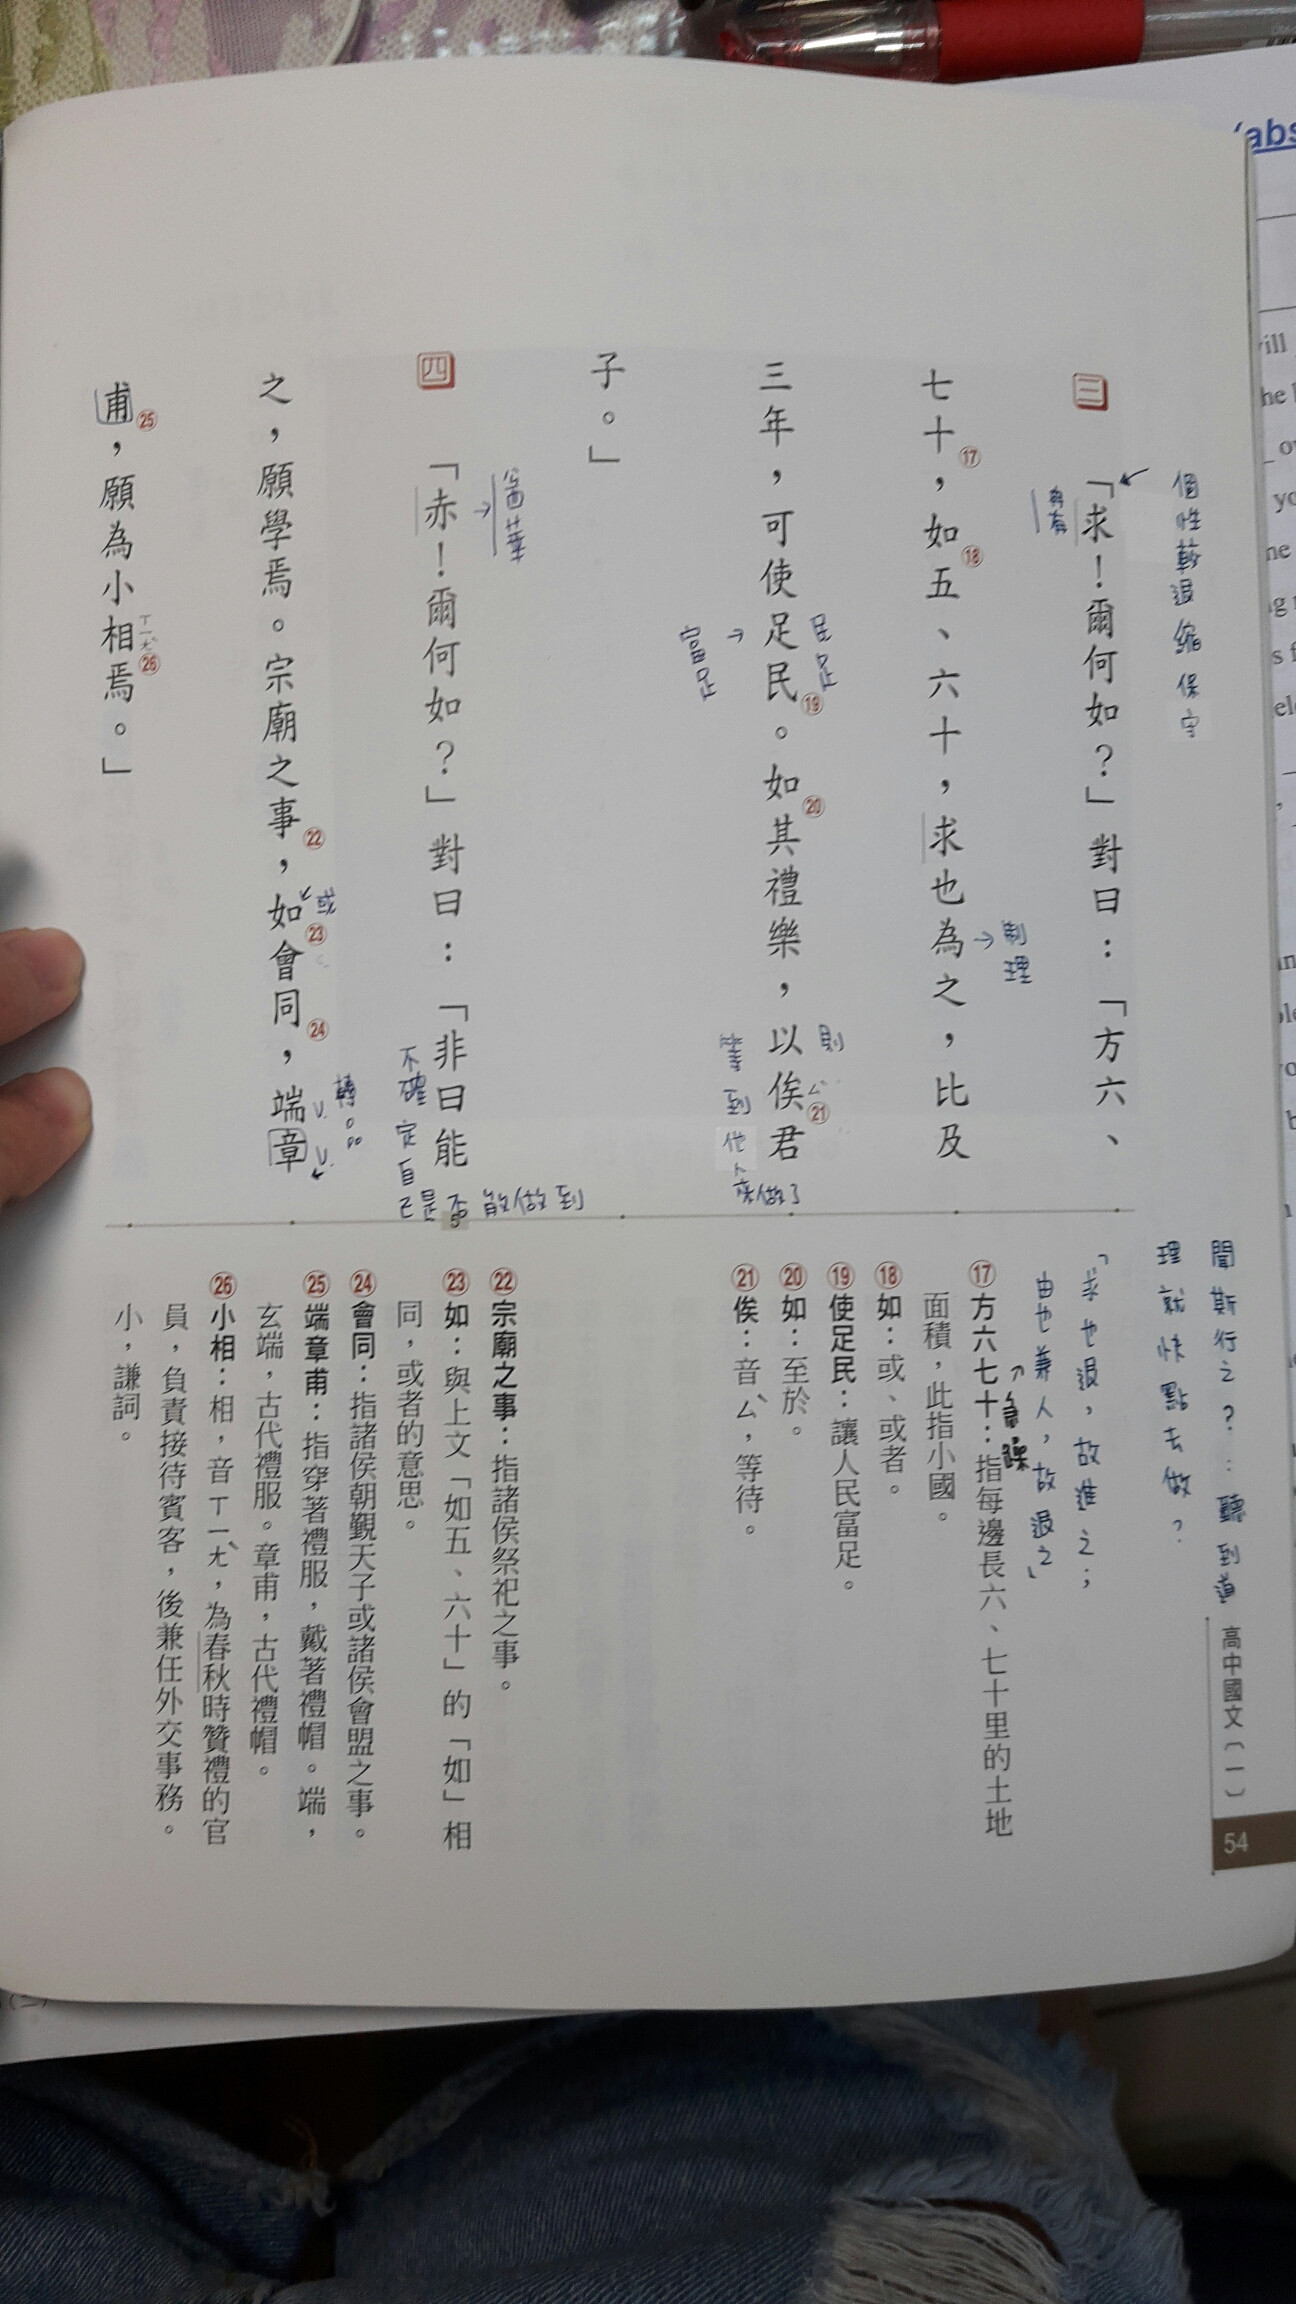 個性較退縮保守
三
「求！爾何如？」對曰：「方六、
冉有
七十⑰，如⑱五、六十，求也為之，比及
制理
三年，可使足民⑲。如⑳其禮樂，以俟㉑君
民足
富足
則
ㄙˋ
等到他人來做了
子。」
四
「赤！爾何如？」對曰：「非曰能
公西華
不確定自己是否能做到
之，願學焉。宗廟之事㉒，如㉓會同㉔，端章
或
轉品
V.
V.
甫㉕，願為小相㉖焉。」
ㄒㄧㄤˋ
聞斯行之？：聽到道
理就快點去做？
「求也退，故進之；
由也兼人，故退之」
急躁
⑰方六七十：指每邊長六、七十里的土地
面積，此指小國。
⑱如：或、或者。
⑲使足民：讓人民富足。
⑳如：至於。
㉑俟：音ㄙˋ，等待。
㉒宗廟之事：指諸侯祭祀之事。
㉓如：與上文「如五、六十」的「如」相
同，或者的意思。
㉔會同：指諸侯朝覲天子或諸侯會盟之事。
㉕端章甫：指穿著禮服，戴著禮帽。端，
玄端，古代禮服。章甫，古代禮帽。
㉖小相：相，音ㄒㄧㄤˋ，為春秋時贊禮的官
員，負責接待賓客，後兼任外交事務。
小，謙詞。
高中國文(一)
54
(abs